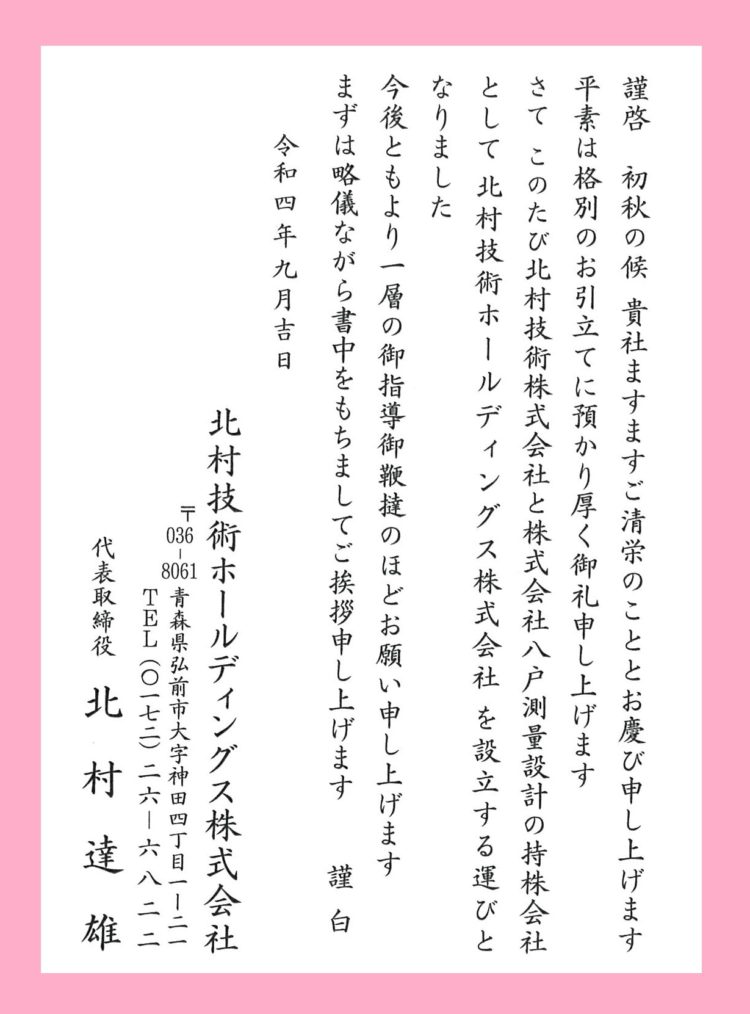 謹啓　初秋の候 貴社ますますご清栄のこととお慶び申し上げます
平素は格別のお引立てに預かり厚く御礼申し上げます
さて このたび北村技術株式会社と株式会社八戸測量設計の持株会社
として 北村技術ホールディングス株式会社 を設立する運びと
なりました
今後ともより一層の御指導御鞭撻のほどお願い申し上げます
まずは略儀ながら書中をもちましてご挨拶申し上げます　謹白
令和四年九月吉日
北村技術ホールディングス株式会社
〒036-8061 青森県弘前市大字神田四丁目一ー二一
ＴＥＬ(〇一七二)二六ー六八二二
代表取締役 北村達雄